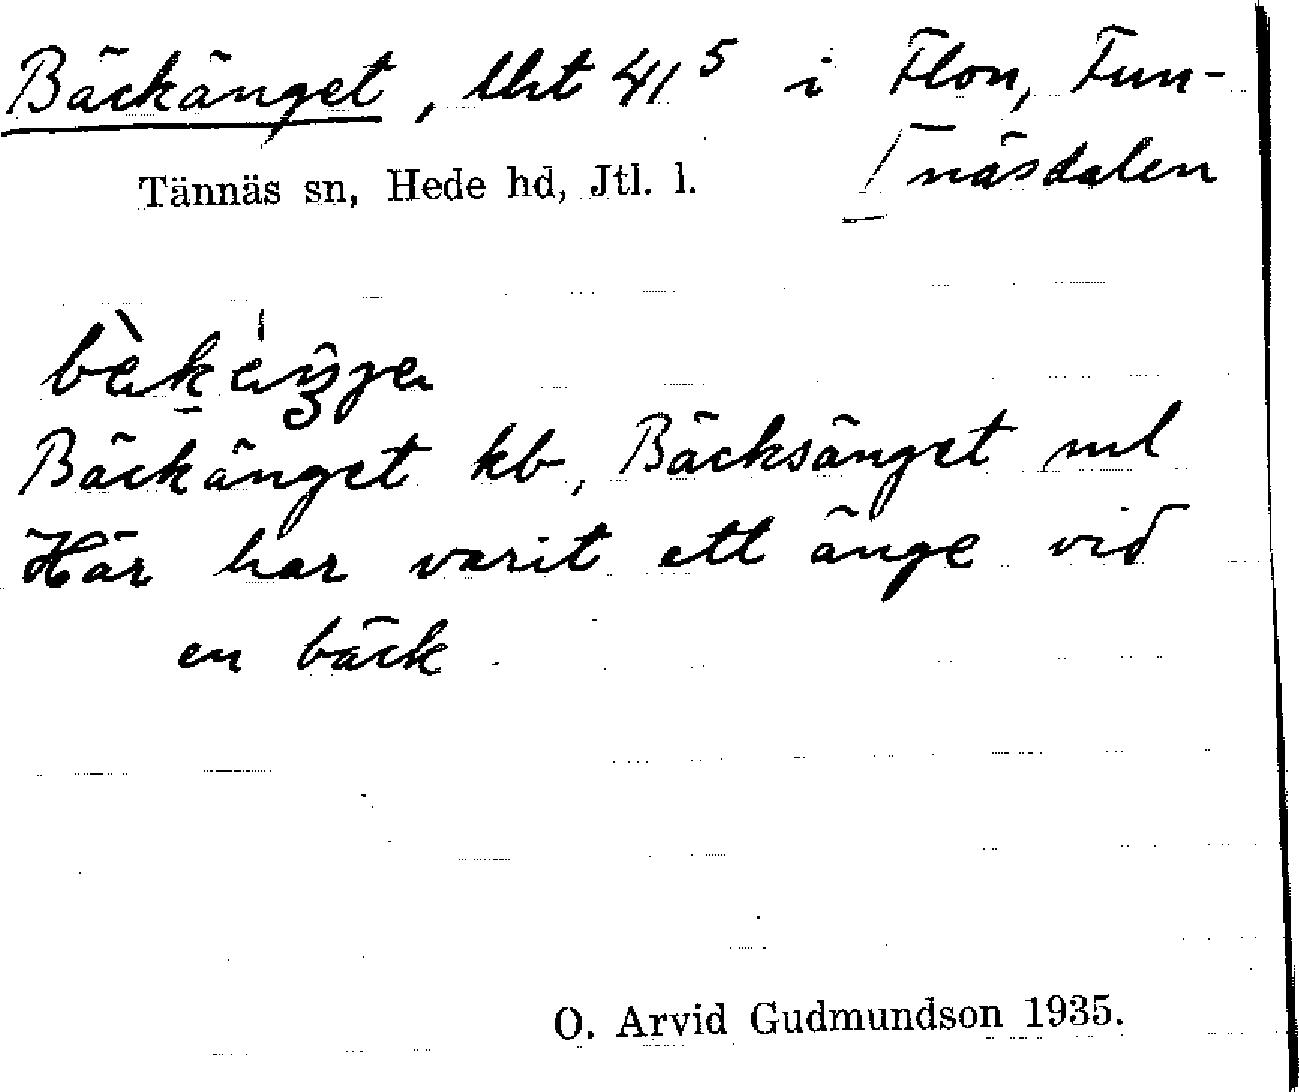 Bäckänget, lht 41⁵ i Flon, Fun-
näsdalen
Tännäs sn, Hede hd, Jtl. l.
Bäckänget kb, Bäcksänget ml
Här har varit ett änge vid
en bäck
O. Arvid Gudmundson 1935.